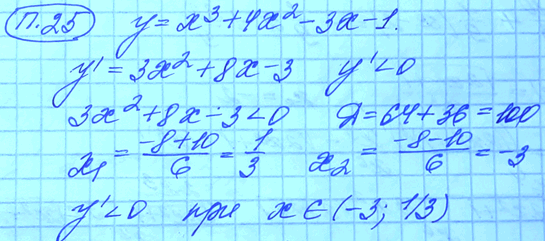 П.25 y = x³ + 4x² - 3x - 1.
y' = 3x² + 8x - 3 y' < 0
3x² + 8x - 3 < 0 Д = 64 + 36 = 100
x₁ = (-8+10)/6 = 1/3 x₂ = (-8-10)/6 = -3
y' < 0 при x ∈ (-3; 1/3)